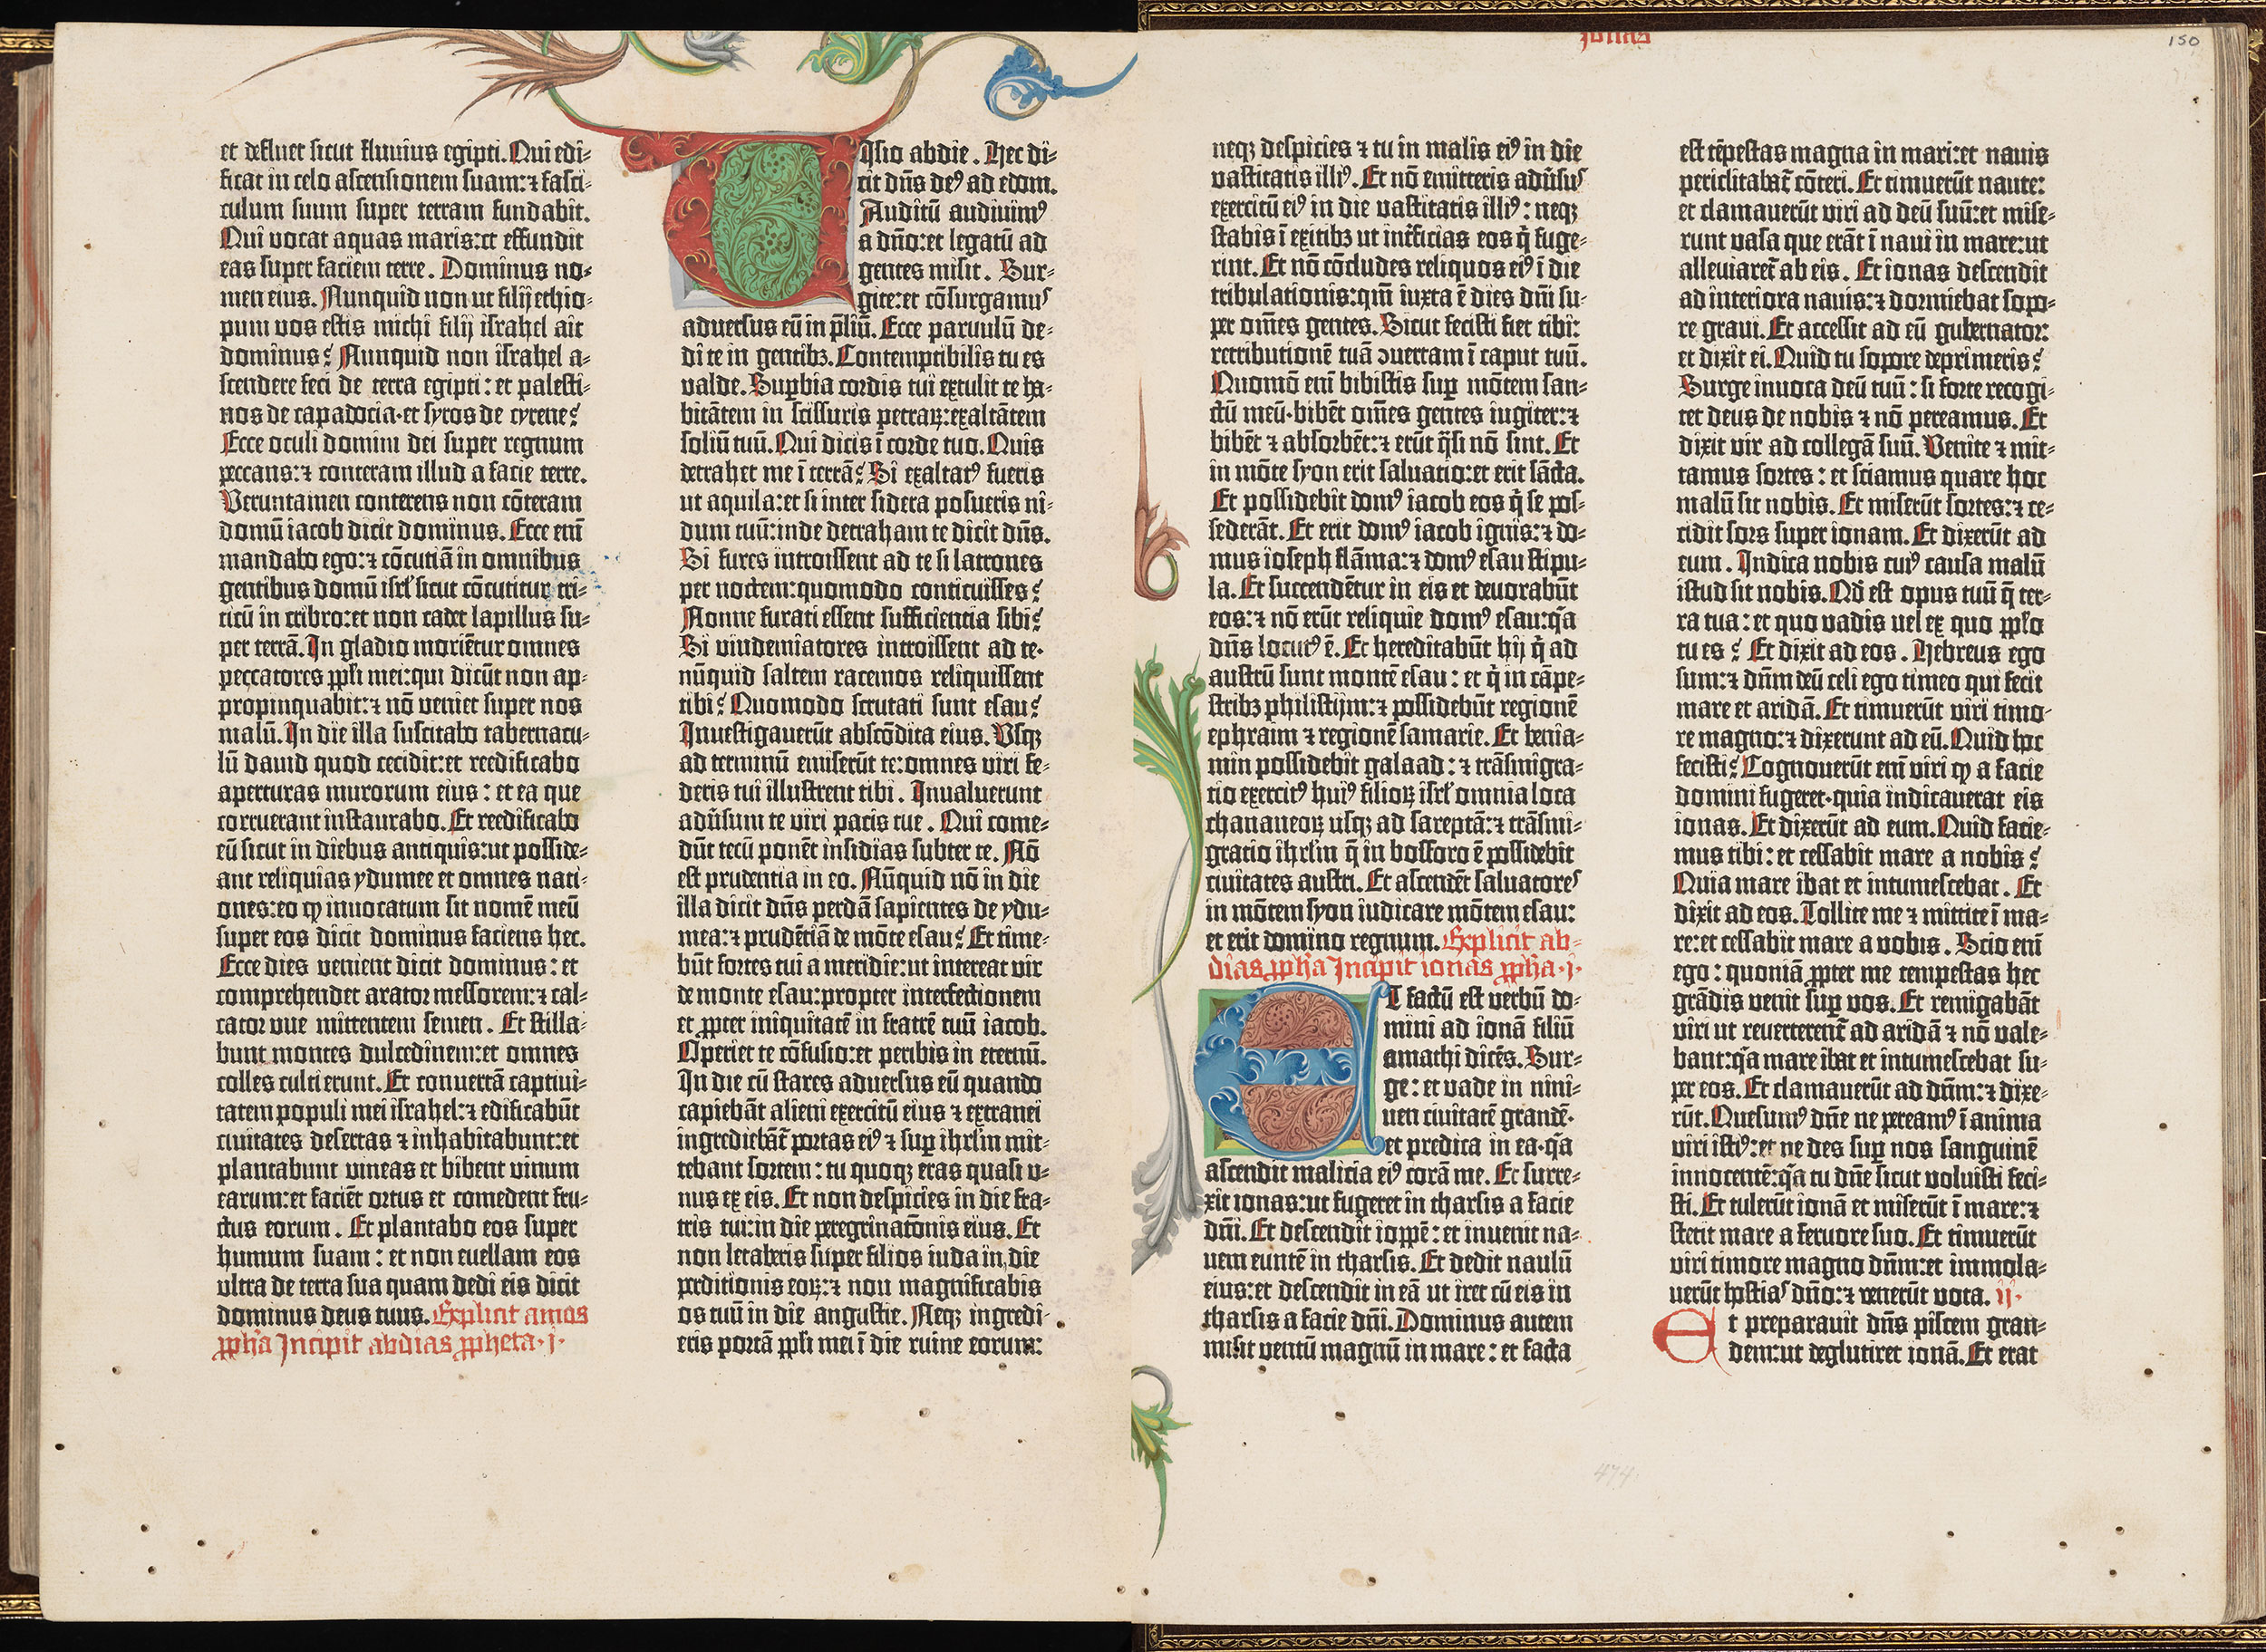 et defluet sicut fluuius egipti. Qui edi-
ficat in celo ascensionem suam: ⁊ fasci-
culum suum super terram fundabit.
Qui vocat aquas maris: et effundit
eas super faciem terre. Dominus no-
men eius. Nunquid non ut filij ethio-
pum vos estis michi filij israhel ait
dominus? Nunquid non israhel a-
scendere feci de terra egipti: et palesti-
nos de capadocia· et syros de cyrene?
Ecce oculi domini dei super regnum
peccans: ⁊ conteram illud a facie terre.
Veruntamen conterens non cōteram
domū iacob dicit dominus. Ecce em̄
mandabo ego: ⁊ cōcutiā in omnibus
gentibus domū isrl' sicut cōcutitur tri-
ticū in cribro: et non cadet lapillus su-
per terrā. In gladio moriētur omnes
peccatores ppl̄i mei: qui dicūt non ap-
propinquabit: ⁊ nō veniet super nos
malū. In die illa suscitabo tabernacu-
lū dauid quod cecidit: et reedificabo
aperturas murorum eius: et ea que
corruerant instaurabo. Et reedificabo
eū sicut in diebus antiquis: ut posside-
ant reliquias ydumee et omnes nati-
ones: eo ꝙ inuocatum sit nomē meū
super eos dicit dominus faciens hec.
Ecce dies venient dicit dominus: et
comprehendet arator messorem: ⁊ cal-
cator vue mittentem semen. Et stilla-
bunt montes dulcedinem: et omnes
colles culti erunt. Et conuertā captiui-
tatem populi mei israhel: ⁊ edificabūt
ciuitates desertas ⁊ inhabitabunt: et
plantabunt vineas et bibent vinum
earum: et faciēt ortus et comedent fru-
ctus eorum. Et plantabo eos super
humum suam: et non euellam eos
ultra de terra sua quam dedi eis dicit
dominus deus tuus. Explicit amos
ꝓph̄a Incipit abdias ꝓpheta·i·
Visio abdie. Hec di-
cit dn̄s deꝰ ad edom.
Auditū audiuimꝰ
a dn̄o: et legatū ad
gentes misit. Sur-
gite: et cōsurgamus
aduersus eū in p̄liū. Ecce paruulū de-
di te in gentibꝫ. Contemptibilis tu es
valde. Suꝑbia cordis tui extulit te ha-
bitātem in scissuris petraꝝ: exaltātem
soliū tuū. Qui dicis ī corde tuo. Quis
detrahet me ī terrā? Si exaltatꝰ fueris
ut aquila: et si inter sidera posueris ni-
dum tuū: inde detraham te dicit dn̄s.
Si fures introissent ad te si latrones
per noctem: quomodo conticuisses?
Nonne furati essent sufficientia sibi?
Si vindemiatores introissent ad te·
nūquid saltem racemos reliquissent
tibi? Quomodo scrutati sunt esau?
Inuestigauerūt abscōdita eius. Vsqꝫ
ad terminū emiserūt te: omnes viri fe-
deris tui illustrent tibi. Inualuerunt
adūsum te viri pacis tue. Qui come-
dūt tecū ponēt insidias subter te. Nō
est prudentia in eo. Nūquid nō in die
illa dicit dn̄s perdā sapientes de ydu-
mea: ⁊ prudētiā de mōte esau? Et time-
būt fortes tui a meridie: ut intereat vir
de monte esau: propter interfectionem
et ꝓpter iniquitatē in fratrē tuū iacob.
Operiet te cōfusio: et peribis in eternū.
In die cū stares aduersus eū quando
capiebāt alieni exercitū eius ⁊ extranei
ingrediebāt̄ portas eiꝰ ⁊ suꝑ ihrl̄m mit-
tebant sortem: tu quoqꝫ eras quasi v-
nus ex eis. Et non despicies in die fra-
tris tui: in die peregrinatōnis eius. Et
non letaberis super filios iuda in die
perditionis eoꝝ: ⁊ non magnificabis
os tuū in die angustie. Neqꝫ ingredi-
eris portā ppl̄i mei ī die ruine eorum:
ionas
150
neqꝫ despicies ⁊ tu in malis eiꝰ in die
vastitatis illiꝰ. Et nō emitteris adūsus
exercitū eiꝰ in die vastitatis illiꝰ: neqꝫ
stabis ī exitibꝫ ut int̄ficias eos q̄ fuge-
rint. Et nō cōcludes reliquos eiꝰ ī die
tribulationis: qm̄ iuxta ē dies dn̄i su-
per om̄es gentes. Sicut fecisti fiet tibi:
retributionē tuā ꝯuertam ī caput tuū.
Quomō em̄ bibistis suꝑ mōtem san-
ctū meū· bibēt om̄es gentes iugiter: ⁊
bibēt ⁊ absorbēt: ⁊ erūt q̄si nō sint. Et
in mōte syon erit saluatio: et erit sācta.
Et possidebit domꝰ iacob eos q̄ se pos-
sederāt. Et erit domꝰ iacob ignis: ⁊ do-
mus ioseph flāma: ⁊ domꝰ esau stipu-
la. Et succendētur in eis et deuorabūt
eos: ⁊ nō erūt reliquie domꝰ esau: q̄a
dn̄s locutꝰ ē. Et hereditabūt hij q̄ ad
austrū sunt montē esau: et q̄ in cāpe-
stribꝫ philistijm: ⁊ possidebūt regionē
ephraim ⁊ regionē samarie. Et benia-
min possidebit galaad: ⁊ trāsmigra-
tio exercitꝰ huiꝰ filioꝝ isrl' omnia loca
chananeoꝝ usqꝫ ad sareptā: ⁊ trāsmi-
gratio ihrl̄m q̄ in bosforo ē possidebit
ciuitates austri. Et ascendēt saluatores
in mōtem syon iudicare mōtem esau:
et erit domino regnum. Explicit ab-
dias ꝓph̄a Incipit ionas ꝓph̄a·i·
ET factū est verbū do-
mini ad ionā filiū
amathi dicēs. Sur-
ge: et vade in nini-
uen ciuitatē grandē·
et predica in ea· q̄a
ascendit malicia eiꝰ corā me. Et surre-
xit ionas: ut fugeret in tharsis a facie
dn̄i. Et descendit ioppē: et inuenit na-
uem euntē in tharsis. Et dedit naulū
eius: et descendit in eā ut iret cū eis in
tharsis a facie dn̄i. Dominus autem
misit ventū magnū in mare: et facta
est tēpestas magna in mari: et nauis
periclitabat̄ cōteri. Et timuerūt naute:
et clamauerūt viri ad deū suū: et mise-
runt vasa que erāt ī naui in mare: ut
alleuiaret̄ ab eis. Et ionas descendit
ad interiora nauis: ⁊ dormiebat sopo-
re graui. Et accessit ad eū gubernator:
et dixit ei. Quid tu sopore deprimeris?
Surge inuoca deū tuū: si forte recogi-
tet deus de nobis ⁊ nō pereamus. Et
dixit vir ad collegā suū. Venite ⁊ mit-
tamus sortes: et sciamus quare hoc
malū sit nobis. Et miserūt sortes: ⁊ ce-
cidit sors super ionam. Et dixerūt ad
eum. Indica nobis cuiꝰ causa malū
istud sit nobis. Qd̄ est opus tuū q̄ ter-
ra tua: et quo vadis uel ex quo ppl̄o
tu es? Et dixit ad eos. Hebreus ego
sum: ⁊ dn̄m deū celi ego timeo qui fecit
mare et aridā. Et timuerūt viri timo-
re magno: ⁊ dixerunt ad eū. Quid hoc
fecisti? Cognouerūt em̄ viri ꝙ a facie
domini fugeret· quia indicauerat eis
ionas. Et dixerūt ad eum. Quid facie-
mus tibi: et cessabit mare a nobis?
Quia mare ibat et intumescebat. Et
dixit ad eos. Tollite me ⁊ mittite ī ma-
re: et cessabit mare a vobis. Scio em̄
ego: quoniā ꝓpter me tempestas hec
grādis venit suꝑ vos. Et remigabāt
viri ut reuerterent̄ ad aridā ⁊ nō vale-
bant: q̄a mare ibat et intumescebat su-
per eos. Et clamauerūt ad dn̄m: ⁊ dixe-
rūt. Quesumꝰ dn̄e ne pereamꝰ ī anima
viri istiꝰ: et ne des suꝑ nos sanguinē
innocentē: q̄a tu dn̄e sicut voluisti feci-
sti. Et tulerūt ionā et miserūt ī mare: ⁊
stetit mare a feruore suo. Et timuerūt
viri timore magno dn̄m: et immola-
uerūt hostias dn̄o: ⁊ vouerūt vota. ij·
Et preparauit dn̄s piscem gran-
dem: ut deglutiret ionā. Et erat
474